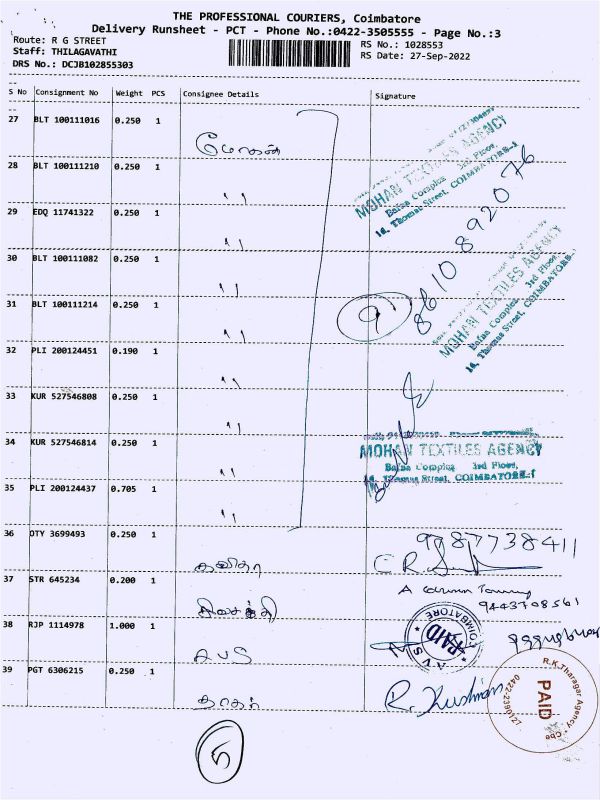 THE PROFESSIONAL COURIERS, Coimbatore
Delivery Runsheet - PCT - Phone No.:0422-3505555 - Page No.:3
Route: R G STREET
RS No.: 1028553
Staff: THILAGAVATHI
RS Date: 27-Sep-2022
DRS No.: DCJB102855303
S No Consignment No Weight PCS Consignee Details Signature
27 BLT 100111016 0.250 1
மோகன்
28 BLT 100111210 0.250 1
MOHAN TEXTILES AGENCY
Bafna Complex 3rd Floor,
14, Thomas Street, COIMBATORE-1
"
29 EDQ 11741322 0.250 1
"
8610 892076
30 BLT 100111082 0.250 1
"
MOHAN TEXTILES AGENCY
Bafna Complex, 3rd Floor,
14, Thomas Street, COIMBATORE-1
31 BLT 100111214 0.250 1
9
"
32 PLI 200124451 0.190 1
"
33 KUR 527546808 0.250 1
"
34 KUR 527546814 0.250 1
MOHAN TEXTILES AGENCY
Bafna Complex 3rd Floor,
14, Thomas Street, COIMBATORE-1
"
35 PLI 200124437 0.705 1
"
36 OTY 3699493 0.250 1
9787738411
கவிதா
37 STR 645234 0.200 1
9443708561
38 RJP 1114978 1.000 1
AVS
A V S
PAID
COIMBATORE
39 PGT 6306215 0.250 1
R.K.Tharagar Agency * Cbe
PAID
0422-2380127
5